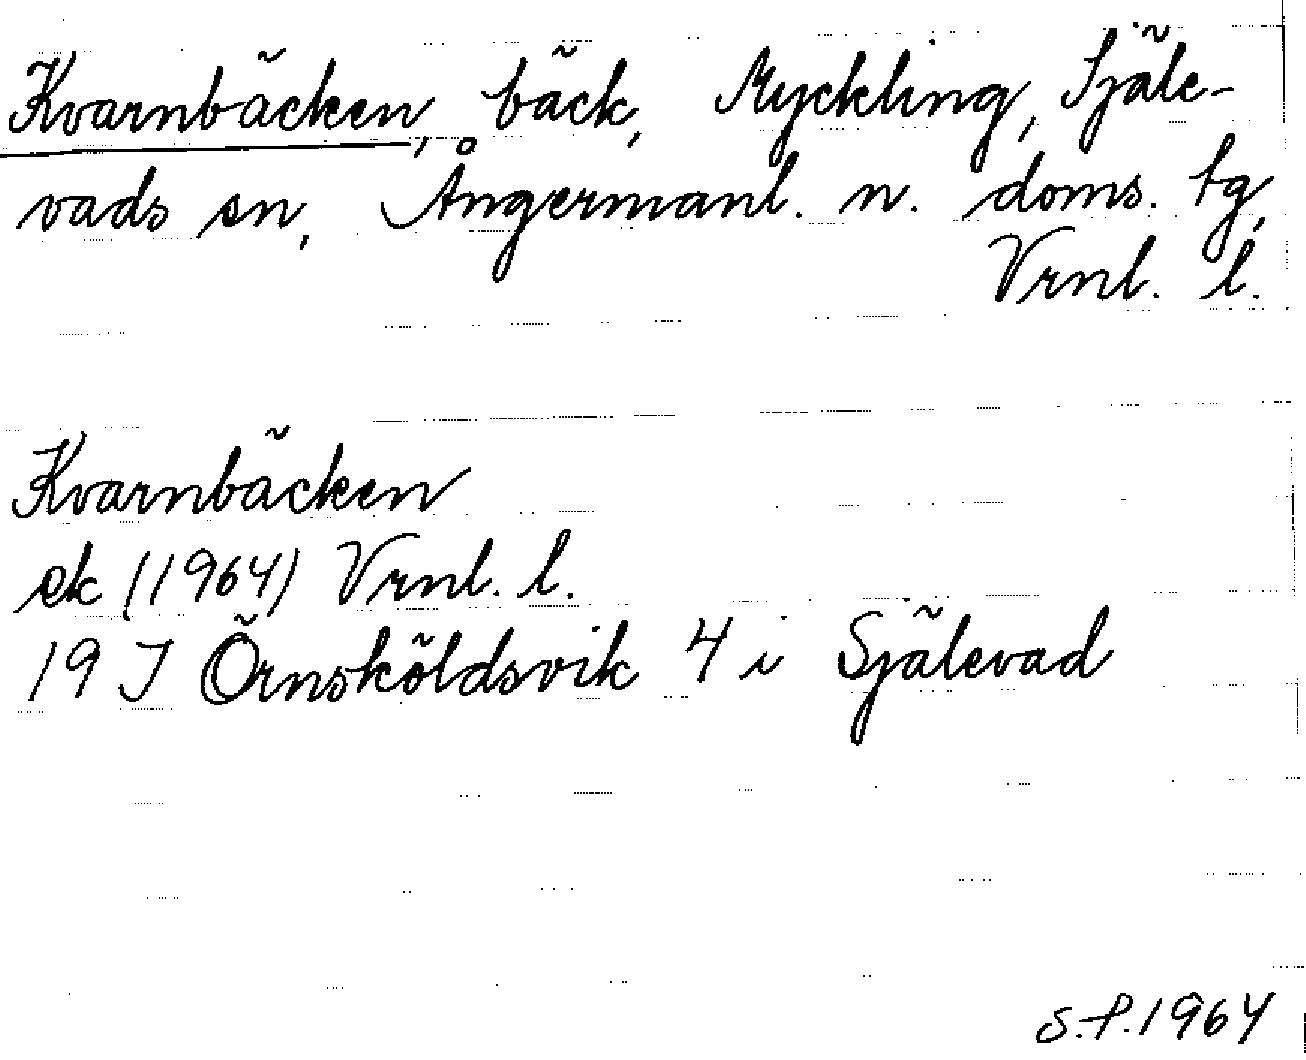 Kvarnbäcken, bäck, Myckling, Själe-
vads sn, Ångermanl. n. doms. tg,
Vrnl. l.
Kvarnbäcken
ek (1964) Vrnl. l.
19 J Örnsköldsvik 4 i Själevad
S.P. 1964